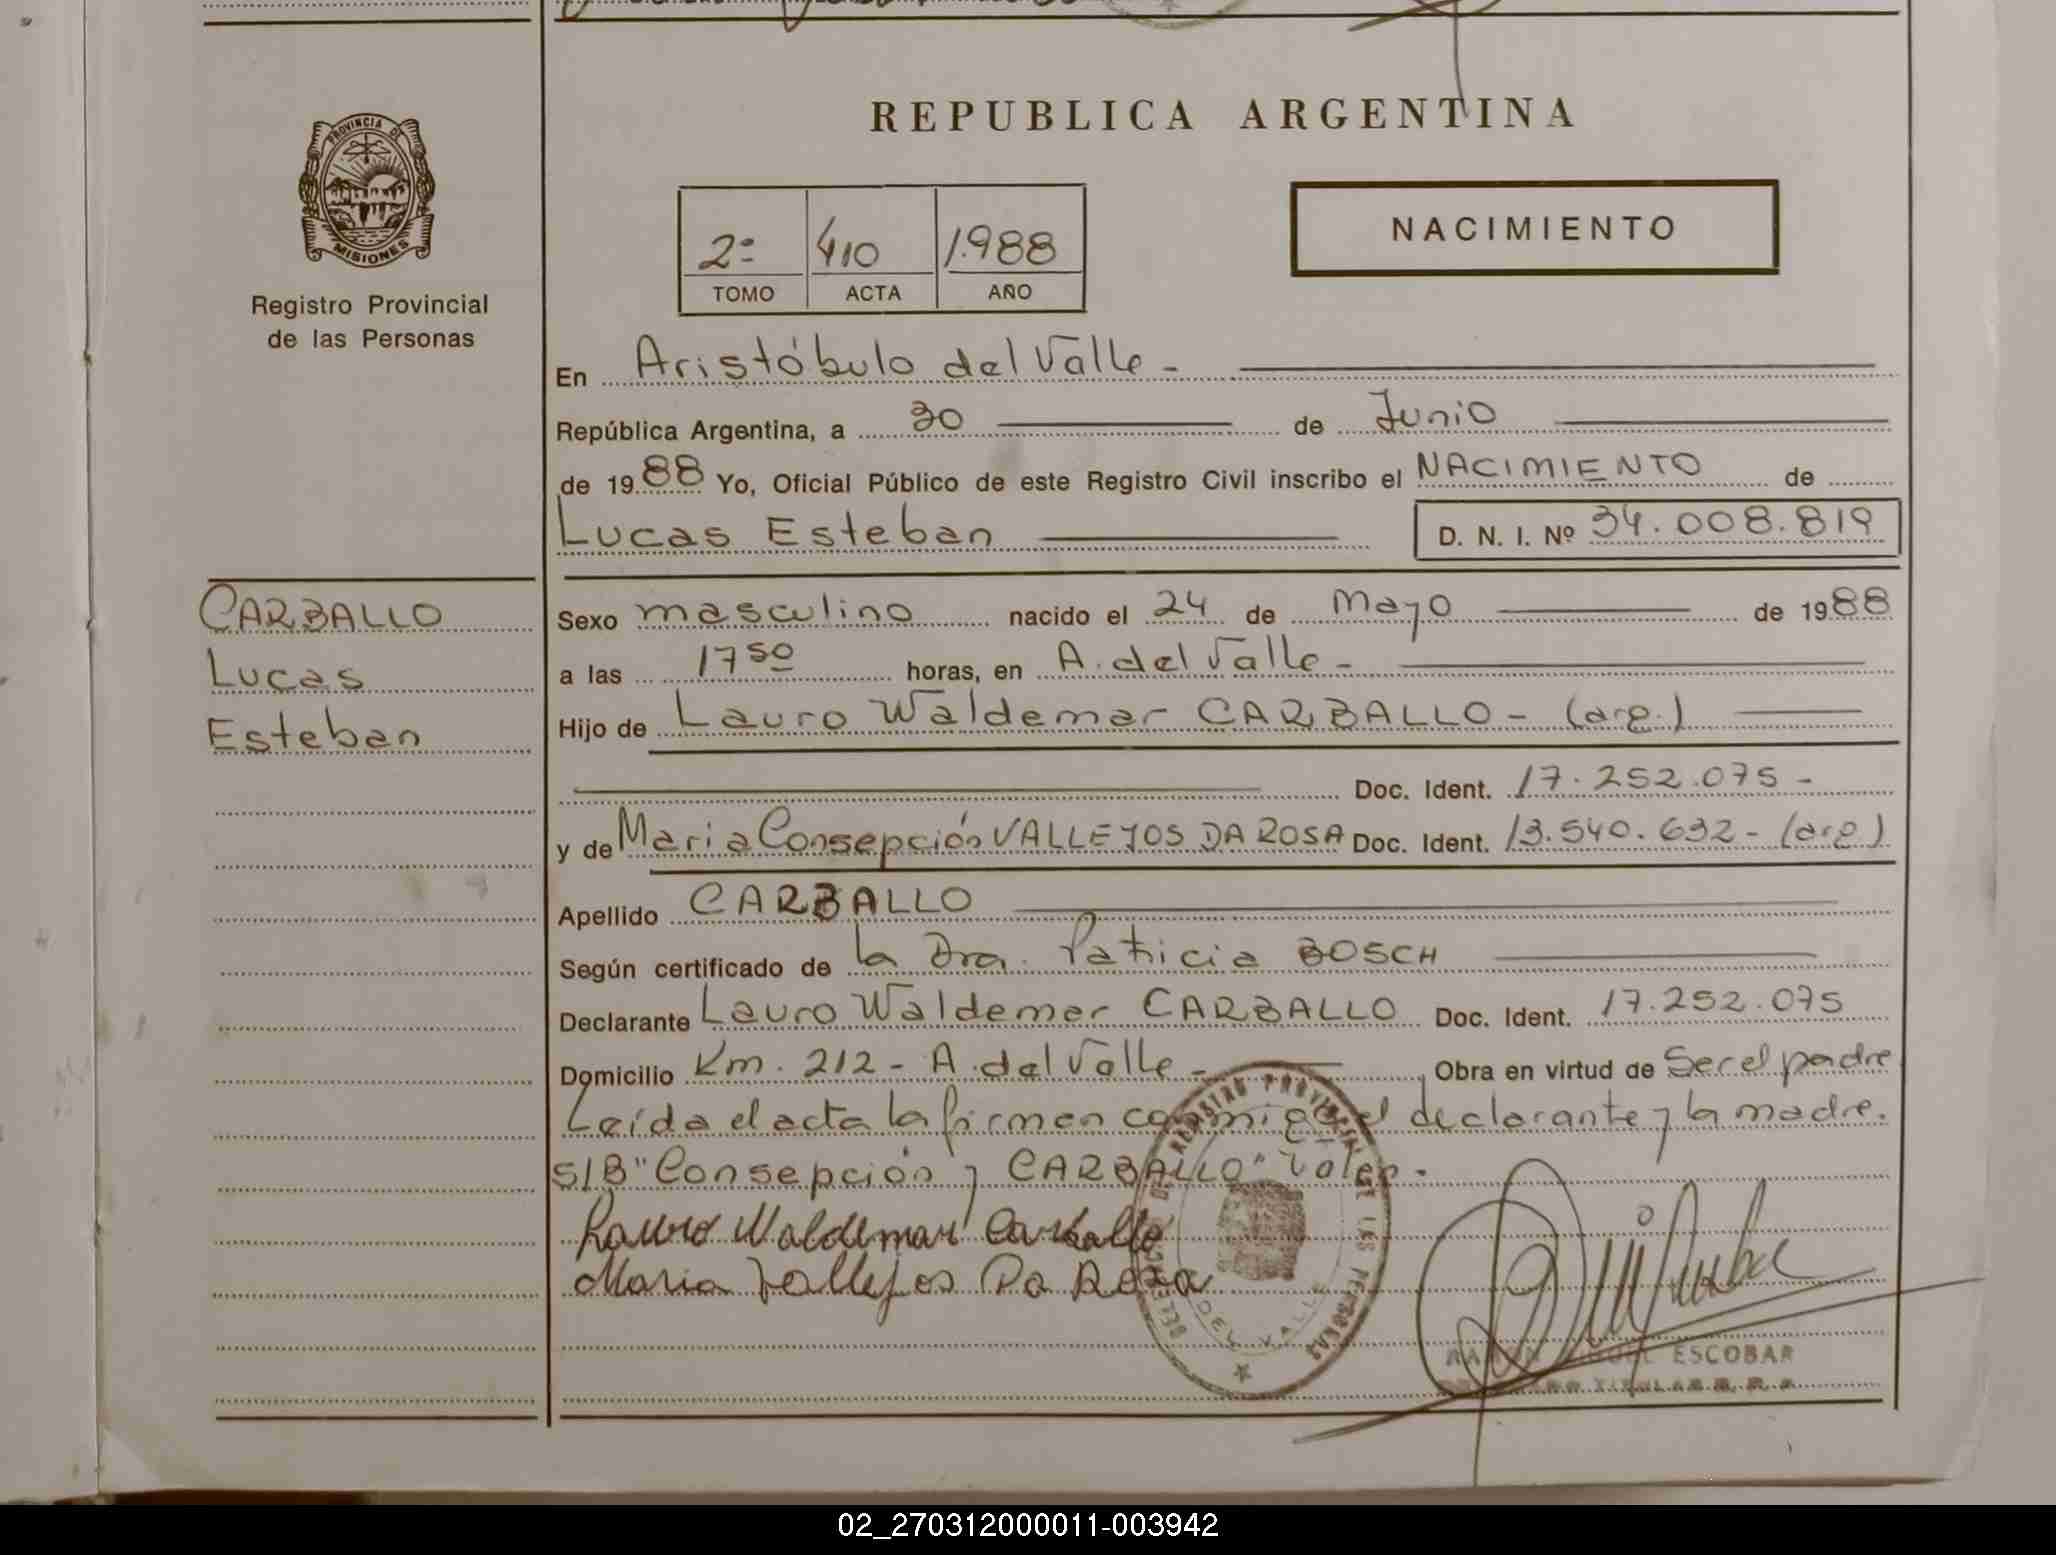 PROVINCIA DE
MISIONES
Registro Provincial
de las Personas
REPUBLICA ARGENTINA
2º 410 1.988
TOMO ACTA AÑO
NACIMIENTO
En Aristóbulo del Valle -
República Argentina, a 30 de Junio
de 1988 Yo, Oficial Público de este Registro Civil inscribo el NACIMIENTO de
Lucas Esteban D. N. I. Nº 34.008.819
CARBALLO
Lucas
Esteban
Sexo masculino nacido el 24 de Mayo de 1988
a las 17 50 horas, en A. del Valle -
Hijo de Lauro Waldemar CARBALLO - (arg.)
Doc. Ident. 17.252.075 -
y de Maria Consepción VALLEJOS DA ROSA Doc. Ident. 13.540.632 - (arg)
Apellido CARBALLO
Según certificado de la Dra. Patricia BOSCH
Declarante Lauro Waldemar CARBALLO Doc. Ident. 17.252.075
Domicilio Km. 212 - A. del Valle - Obra en virtud de Ser el padre
Leída el acta la firman conmigo el declarante y la madre.
S/B "Consepción y CARBALLO" Valen.
Lauro Waldemar Carballo
Maria Vallejos Da Rosa
REGISTRO PROVINCIAL DE LAS PERSONAS
DEL VALLE
ESCOBAR
02_270312000011-003942